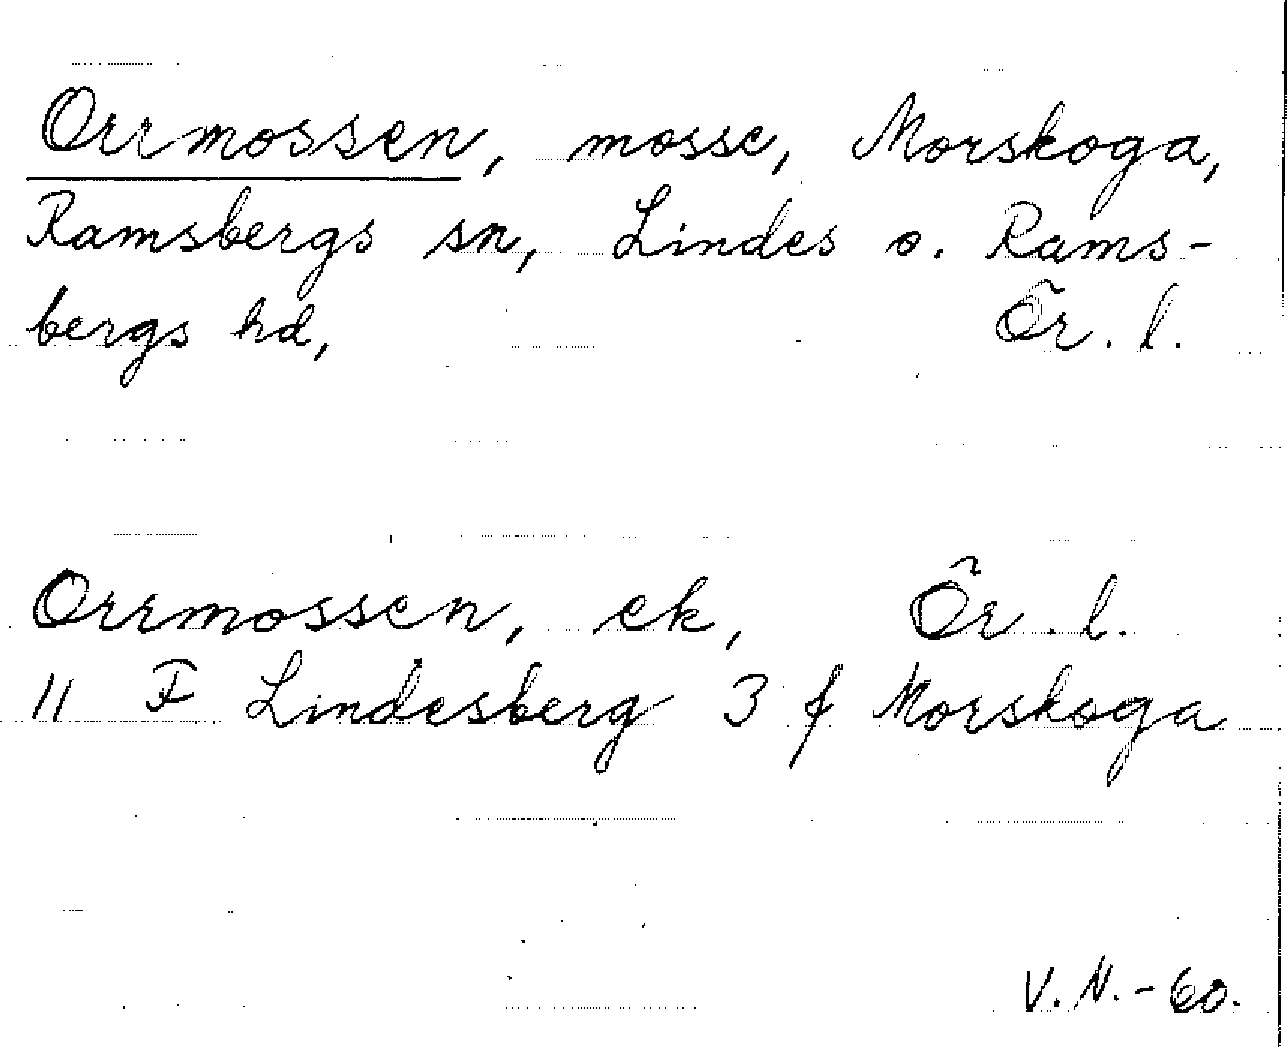 Orrmossen, mosse, Morskoga,
Ramsbergs sn, Lindes o. Rams-
bergs hd, Ör. l.
Orrmossen, ek, Ör. l.
11 F Lindesberg 3 f Morskoga
V. N. - 60.